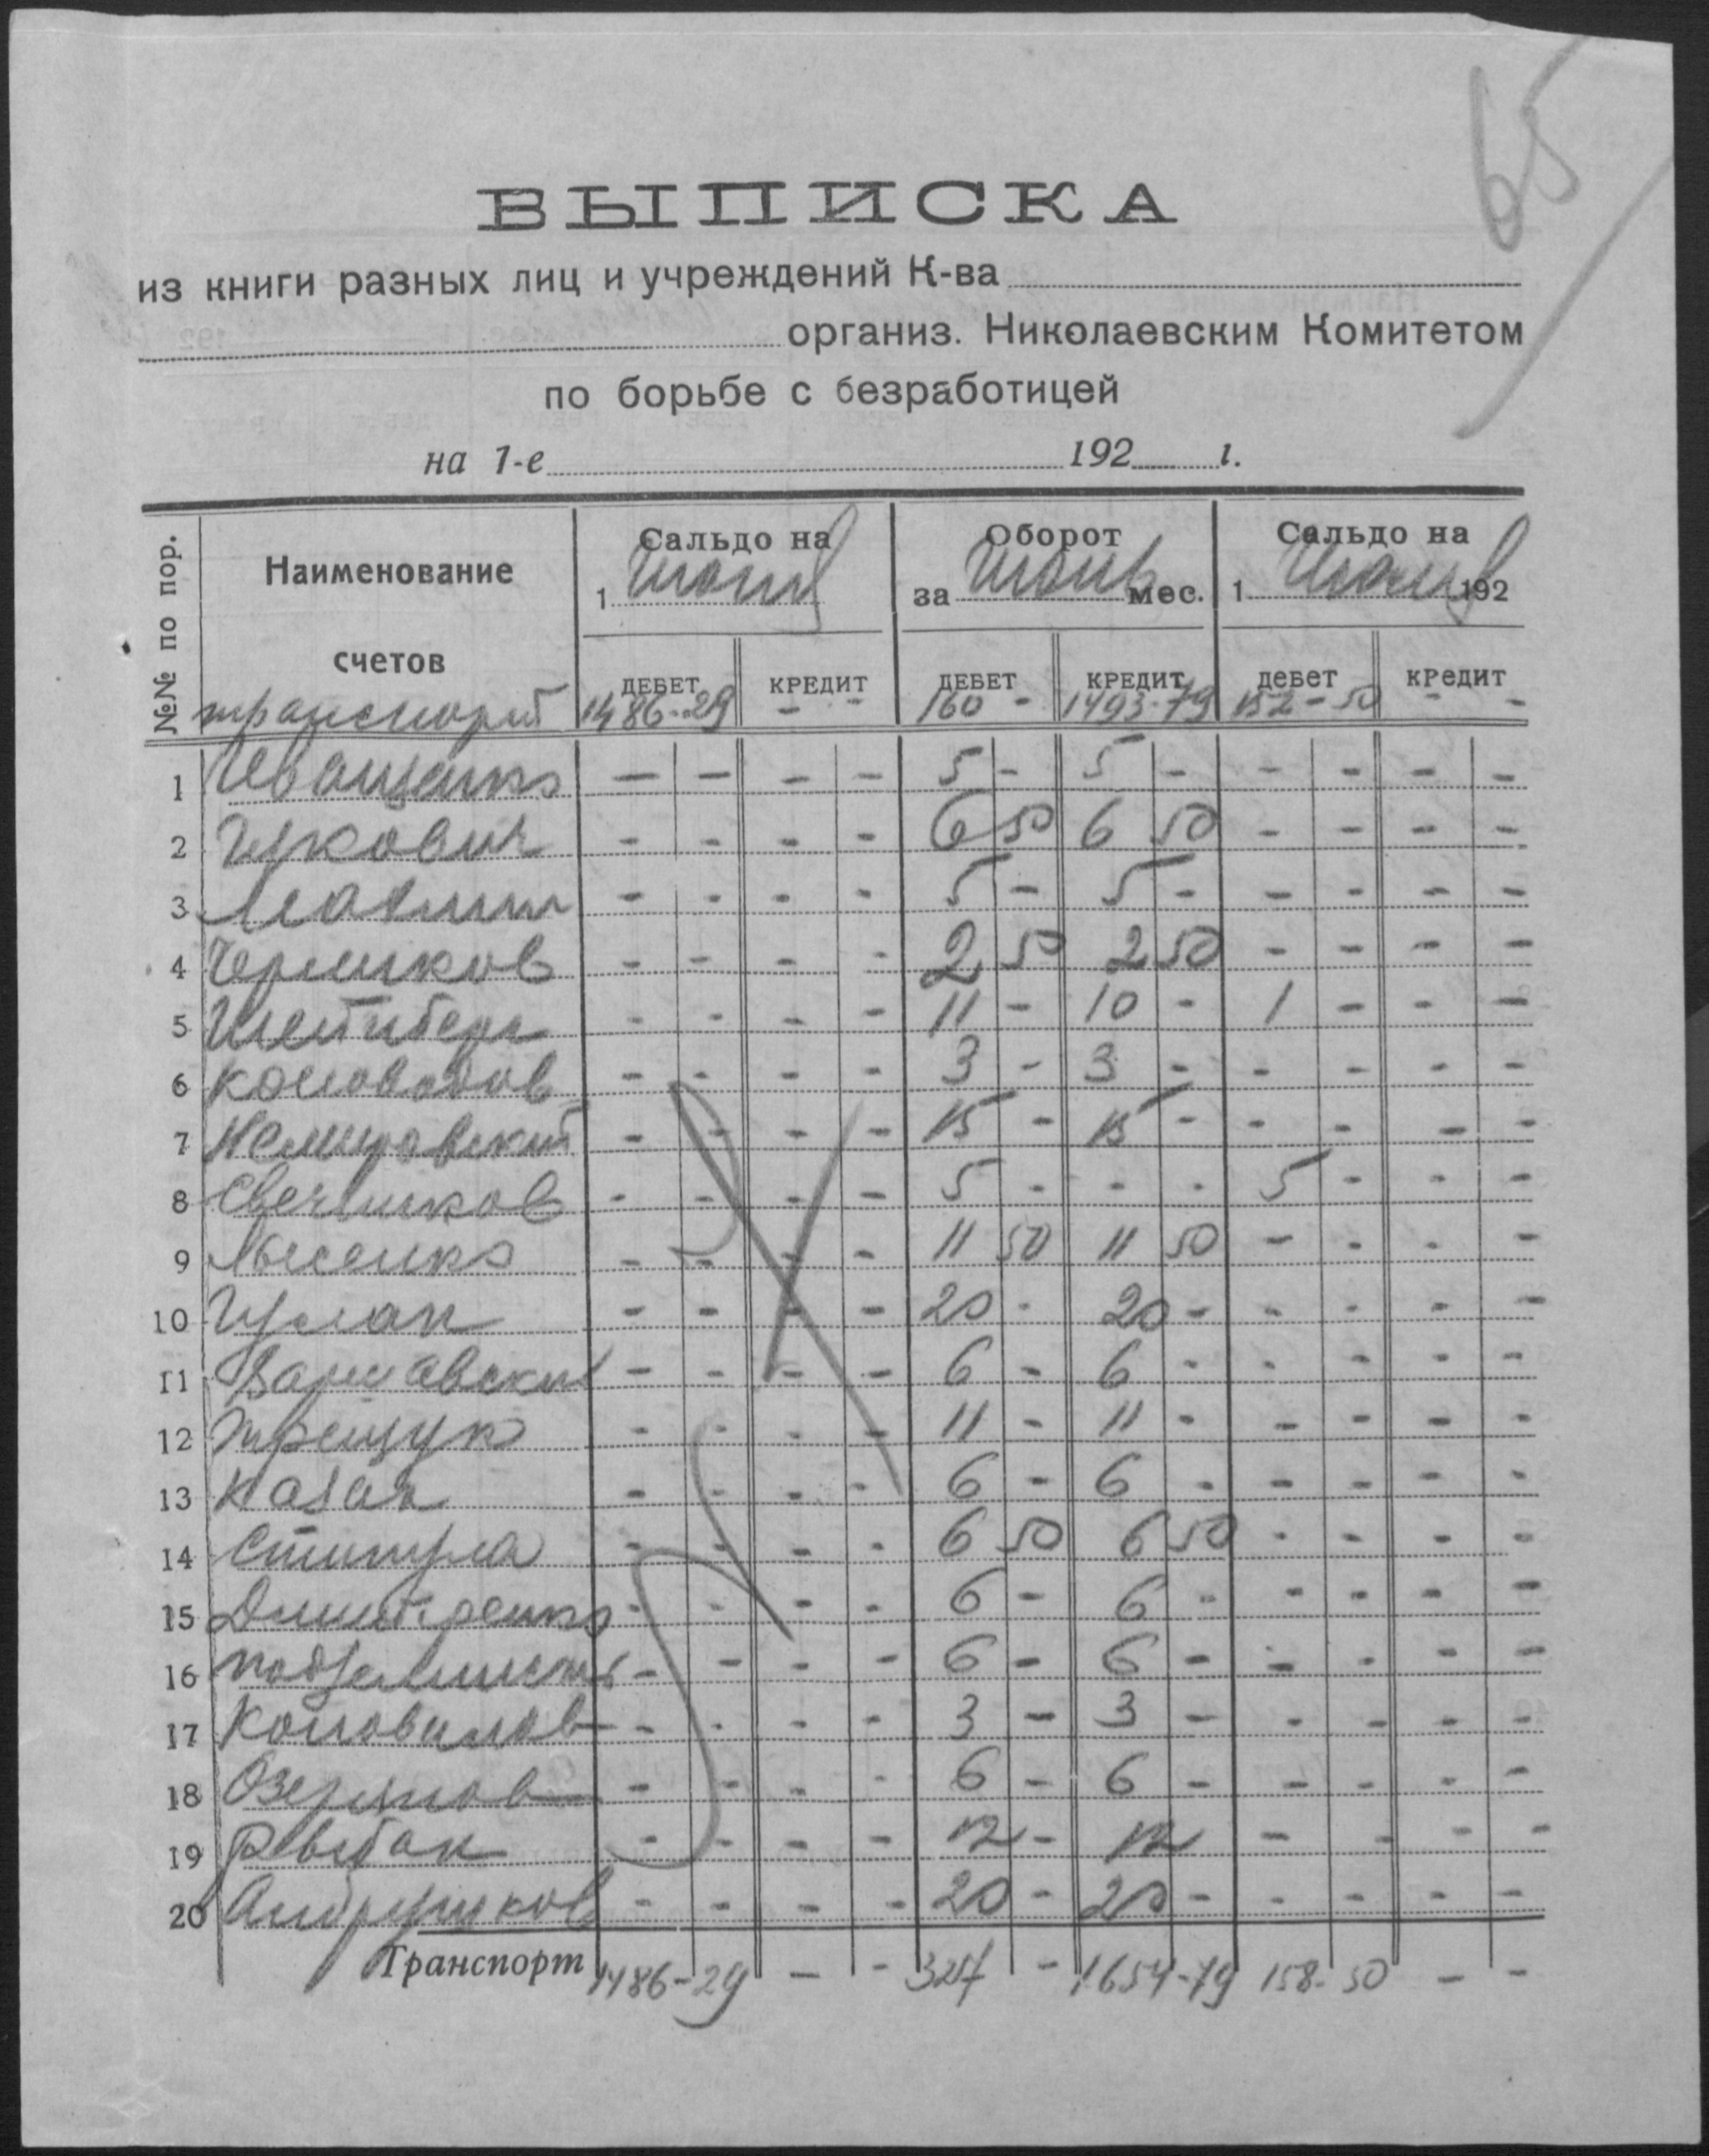 65
ВЫПИСКА
из книги разных лиц и учреждений К-ва
организ. Николаевским Комитетом
по борьбе с безработицей
на 1-е 192 г.
№№ по пор. Наименование счетов Сальдо на 1 июня Оборот за июнь мес. Сальдо на 1 июля 192
дебет кредит дебет кредит дебет кредит
транспорт 1486-29 - - 160 - 1493-79 152-50 - -
1 Иващенко — — - - 5 - 5 - - - - -
2 Цукович - - - - 6 50 6 50 - - - -
3 - - - - 5 - 5 - - - - -
4 Черников - - - - 2 50 2 50 - - - -
5 - - - - 11 - 10 - 1 - - -
6 Коновалов - - - - 3 - 3 - - - - -
7 Немировский - - - - 15 - 15 - - - - -
8 Свечников - - - - 5 - - - 5 - - -
9 Лысенко - - - - 11 50 11 50 - - - -
10 - - - - 20 - 20 - - - - -
11 Варшавский - - - - 6 - 6 - - - - -
12 - - - - 11 - 11 - - - - -
13 Казак - - - - 6 - 6 - - - - -
14 - - - - 6 50 6 50 - - - -
15 Дмитренко - - - - 6 - 6 - - - - -
16 - - - - 6 - 6 - - - - -
17 Коновалов - - - - 3 - 3 - - - - -
18 - - - - 6 - 6 - - - - -
19 Рыбак - - - - 12 - 12 - - - -
20 Андрушков - - - - 20 - 20 - - - - -
Транспорт 1486-29 - - 327 - 1654-79 158-50 - -